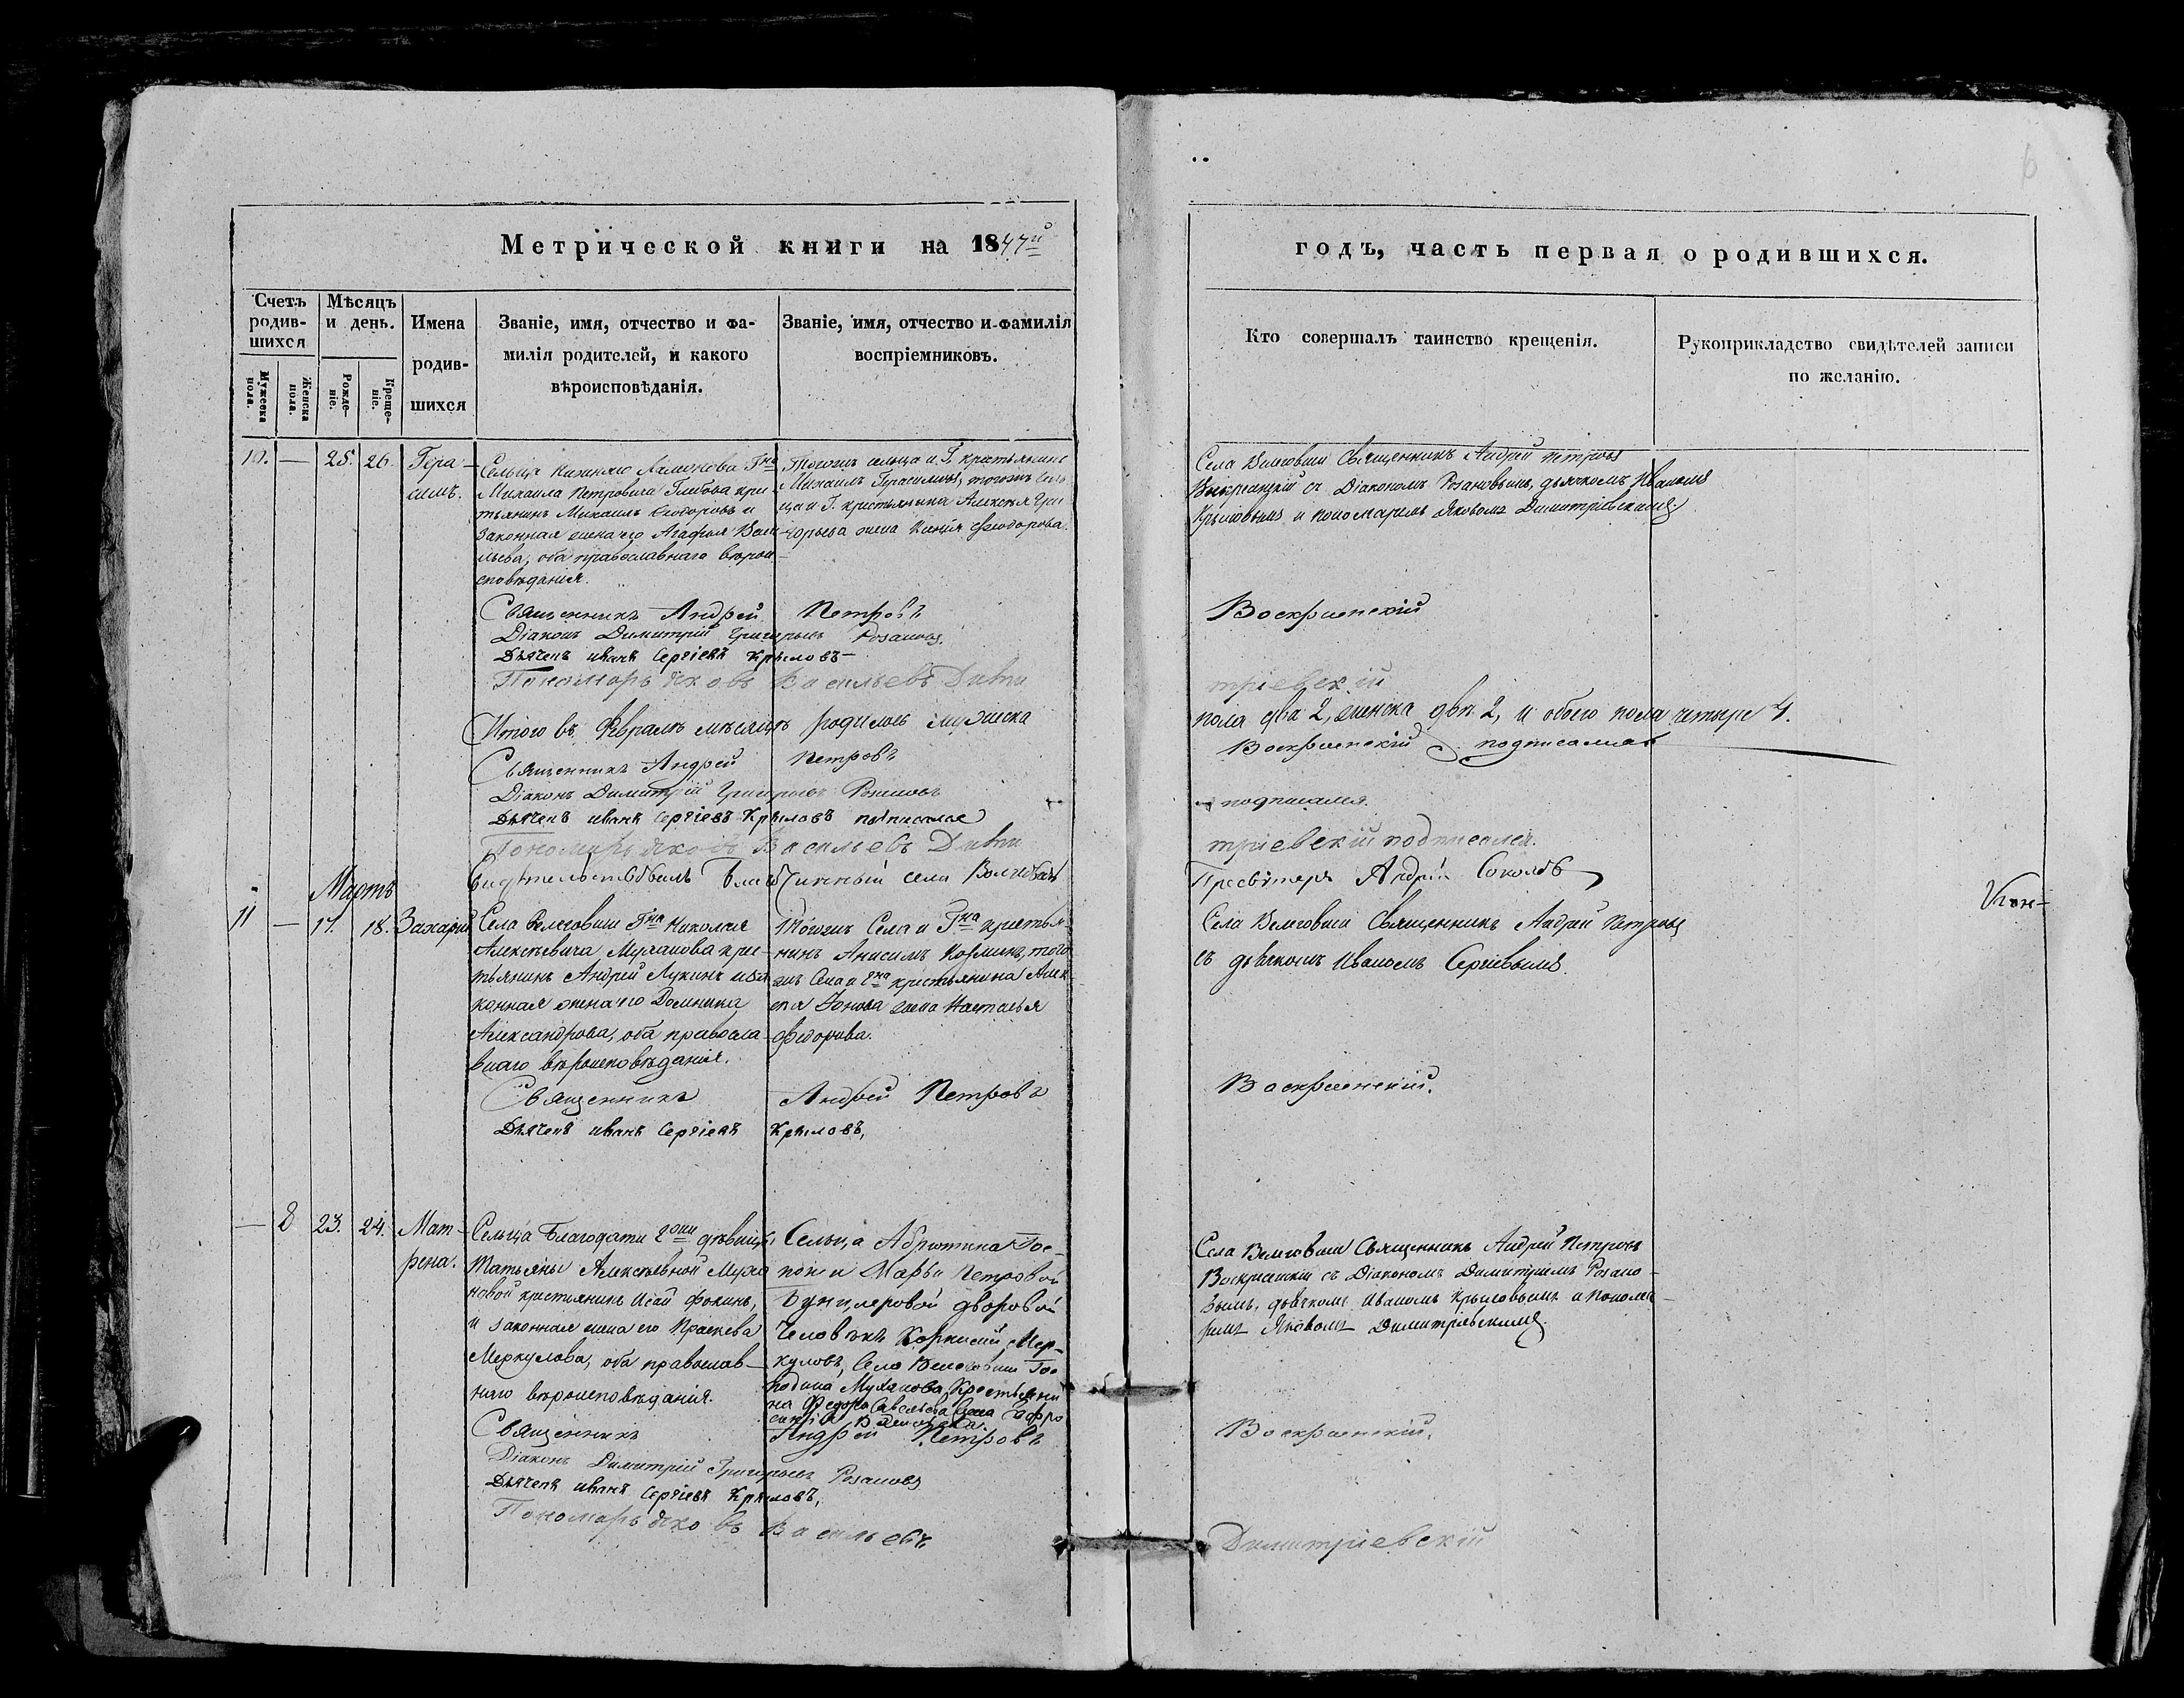 Метрической книги на 1847й
годъ, часть первая о родившихся.
Счетъ родив-шихся
Мужеска пола.
Женска пола.
Мѣсяцъ и день.
Рожде-ніе.
Креще-ніе.
Имена родив-шихся
Званіе, имя, отчество и фа-
милія родителей, и какого
вѣроисповѣданія.
Званіе, имя, отчество и фамилія
воспріемниковъ.
Кто совершалъ таинство крещенія.
Рукоприкладство свидѣтелей записи
по желанію.
10. — 25. 26. Гера-
симъ.
Сельца Гна
Михаила Петровича Глебова кре-
стьянинъ Михаилъ Ѳеодоровъ и
законная жена его Агафья Васи-
льева, оба православнаго вѣрои-
сповѣданія.
Тогожъ сельца и Г. крестьянинъ
Михаилъ Герасимовъ, тогожъ сель-
ца и Г. крестьянина Алексѣя Гри-
горьева жена Ксенія Ѳеодорова.
Села Священникъ Андрей Петровъ
Воскресенскій съ Діакономъ Розановымъ, дьячкомъ Иваномъ
Крыловымъ и пономаремъ Яковомъ Димитріевскимъ.
Священникъ Андрей Петровъ Воскресенскій
Діаконъ Димитрій Григорьевъ Розановъ.
Дьячекъ иванъ Сергіевъ Крыловъ
Пономарь Яковъ Васильевъ Дими
тріевскій
Итого въ Февралѣ мѣсяцѣ родилось мужеска
пола два 2, женска двѣ 2, и обоего пола четыре 4.
Священникъ Андрей Петровъ Воскресенскій подписался
Діаконъ Димитрій Григорьевъ Розановъ подписался.
Дьячекъ иванъ Сергіевъ Крыловъ подписался
Пономарь Яковъ Васильевъ Дими
тріевскій подписался.
Свидѣтельствовалъ Благочинный села
Пресвитеръ Андрей Соколовъ
Мартъ
11 — 17. 18. Захарій
Села Гна Николая
Алексѣевича Муханова кре-
стьянинъ Андрей Лукинъ и за-
конная жена его Домника
Александрова, оба правосла-
внаго вѣроисповѣданія.
Тогожъ Села и Гна крестья-
нинъ Анисимъ того
жъ Села и Гна крестьянина Алек-
сѣя Іонова жена Настасья
Ѳедорова.
Села Священникъ Андрей Петровъ
съ дьячкомъ Иваномъ Сергіевымъ.
Священникъ Андрей Петровъ Воскресенскій.
Дьячекъ иванъ Сергіевъ Крыловъ,
— 8 23. 24. Мат-
рена.
Сельца Благодати Гжи дѣвицы
Татьяны Алексѣевной Муха
новой крестьянинъ Исай Фокинъ,
и законная жена его Праскева
Меркулова, оба православ-
наго вѣроисповѣданія.
Сельца Абрютина Гос-
пожи Марьи Петровой
дворовой
Человѣкъ Мер-
куловъ, Села Гос
подина Муханова Крестьяни
на Федора Савельева Жена Ефро
синія
Села Священникъ Андрей Петровъ
Воскресенскій съ Діакономъ Димитріемъ Розано-
вымъ, дьячкомъ Иваномъ Крыловымъ и понома-
ремъ Яковомъ Димитріевскимъ.
Священникъ Андрей Петровъ Воскресенскій.
Діаконъ Димитрій Григорьевъ Розановъ
Дьячекъ иванъ Сергіевъ Крыловъ,
Пономарь Яковъ Васильевъ Димитріевскій